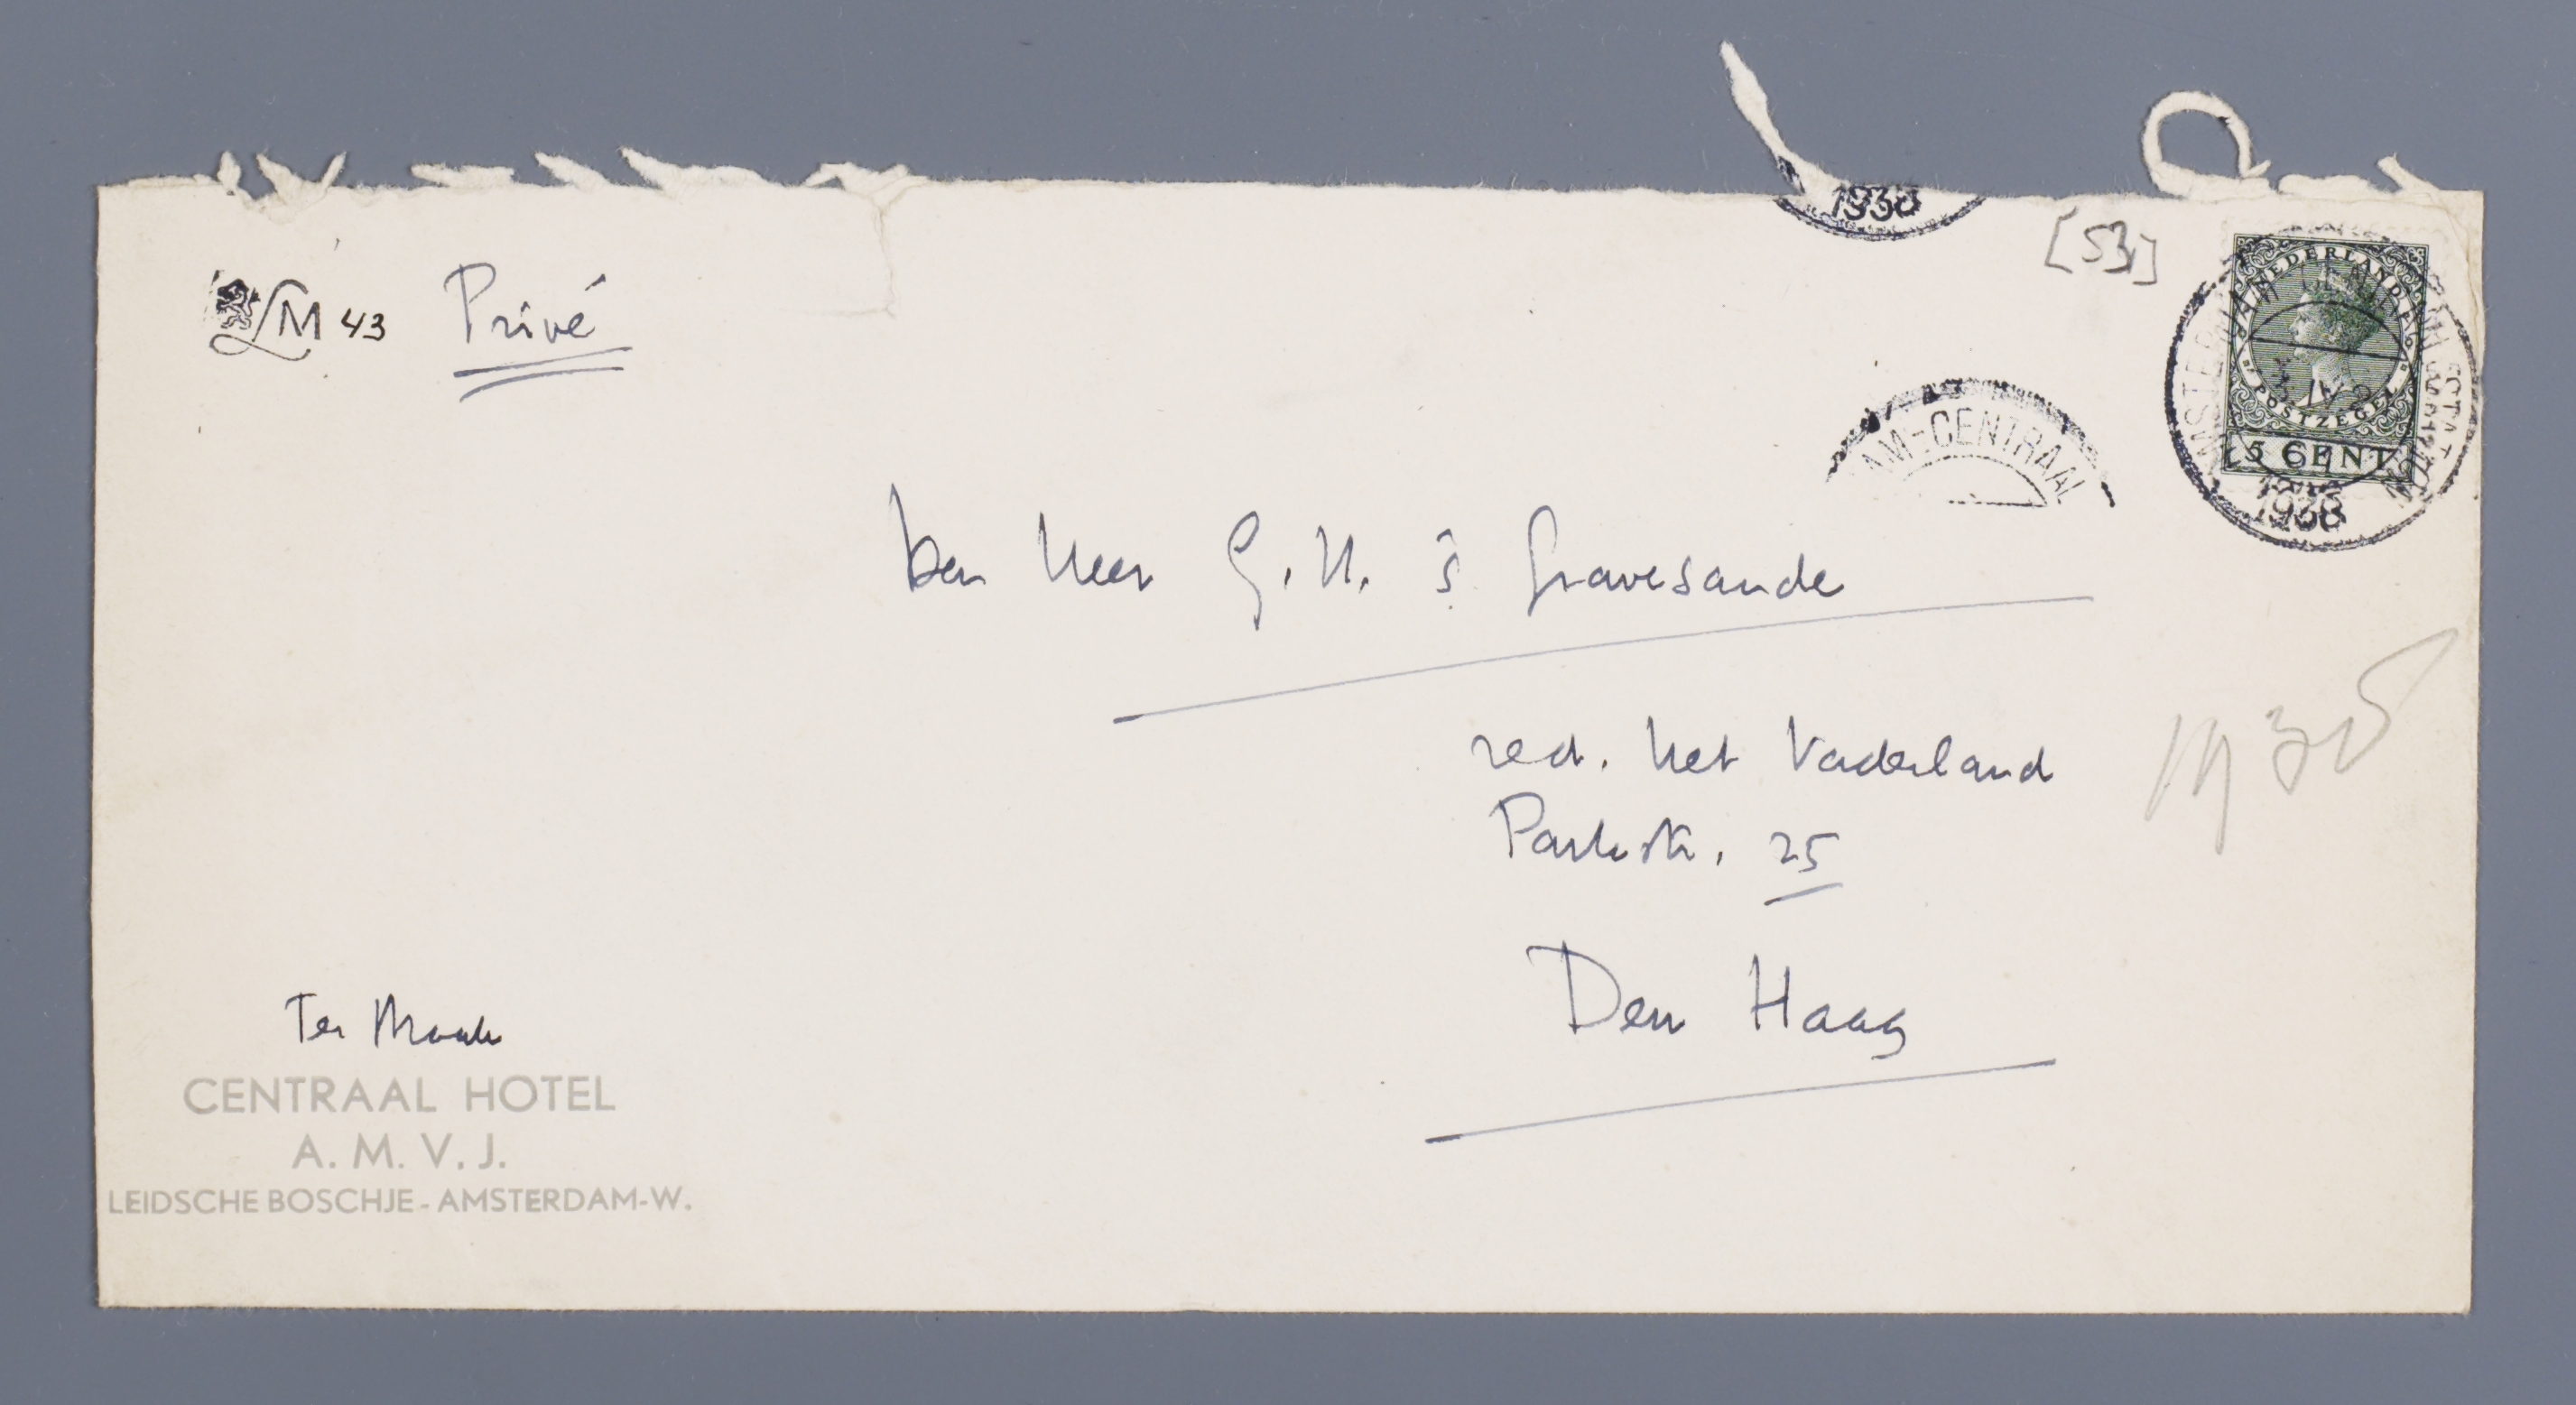 1938
[53]
LM 43 Privé
NEDERLAND
POSTZEGEL
5 CENT
1938
AM-CENTRAAL
Den Heer G.H. 's Gravesande
red. Het Vaderland
Parkstr. 25
1938
Den Haag
Ter Braak
CENTRAAL HOTEL
A. M. V. J.
LEIDSCHE BOSCHJE - AMSTERDAM-W.